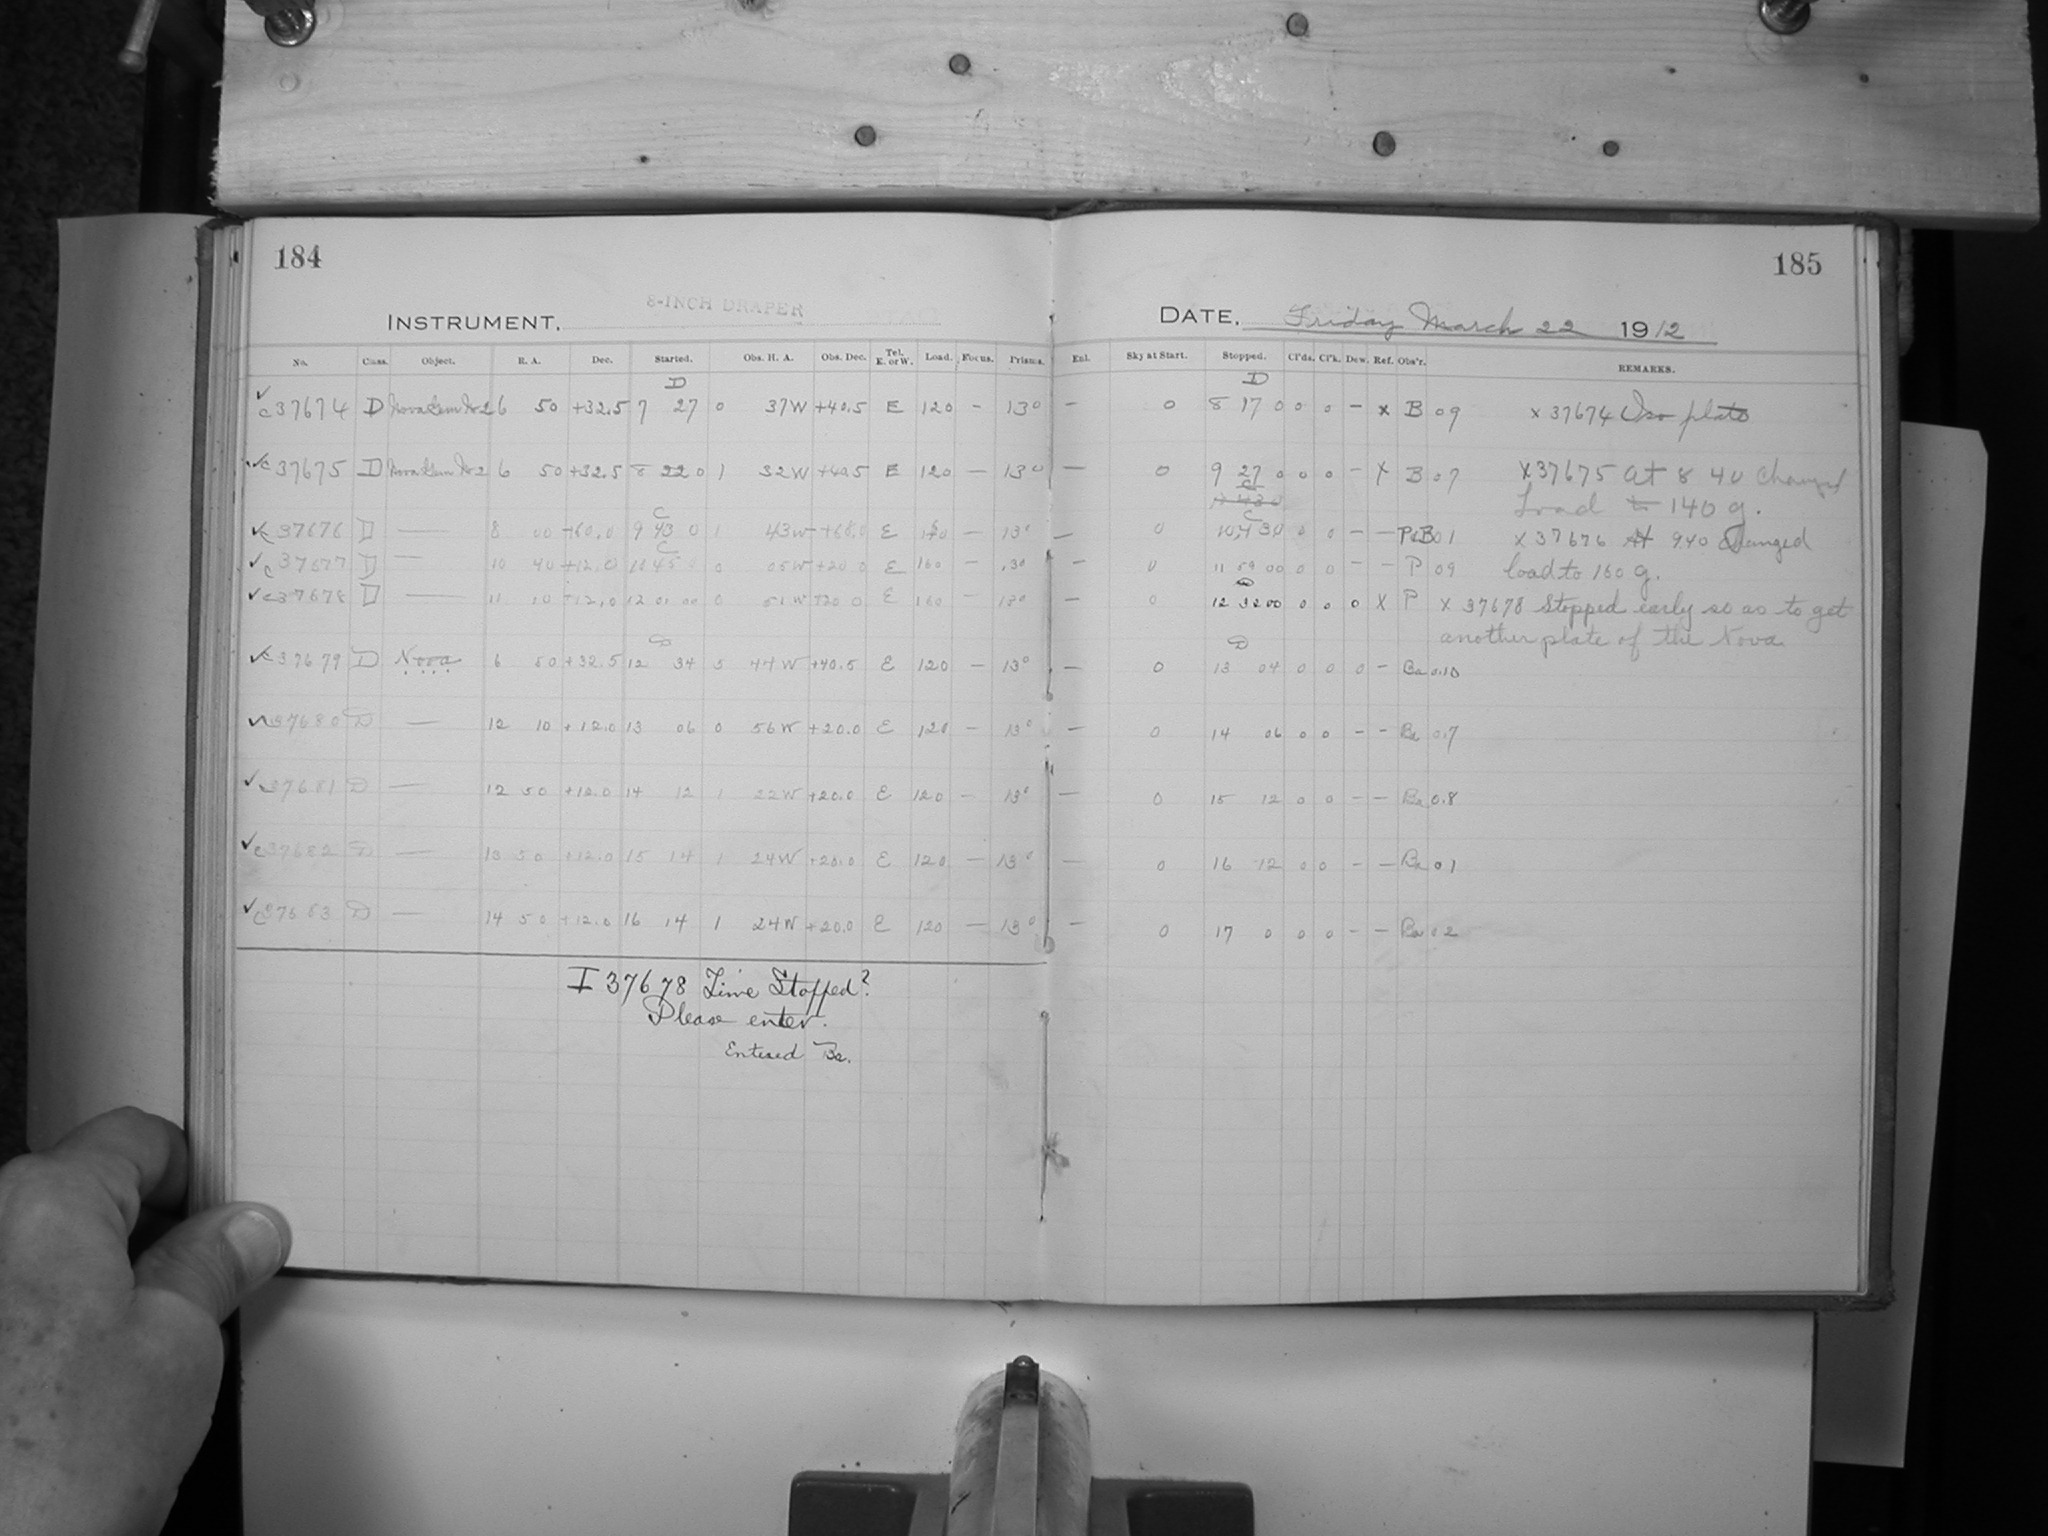 184
185
8-INCH DRAPER
INSTRUMENT,
DATE, Friday March 22 1912
No. Class. Object. R. A. Dec. Started. Obs. H. A. Obs. Dec. Tel. E. or W. Load. Focus. Prisms. Enl. Sky at Start. Stopped. Cl'ds. Cl'k. Dew. Ref. Obs'r. REMARKS.
D D
✓ c 37674 D Nova Gem No 2 6 50 +32.5 7 27 0 37W +40.5 E 120 – 13° — 0 8 17 0 0 0 – x B 09 x 37674 Iso plate
✓c 37675 D Nova Gem No 2 6 50 +32.5 8 22 0 1 32W +40.5 E 120 — 13° — 0 9 27 0 0 0 – x B 07 x 37675 At 8 40 changed
C
load to 140 g.
C C
✓c 37676 D — 8 00 +60.0 9 43 0 1 43W +68.0 E 140 – 13° — 0 10 43 0 0 0 – – P&B 01 x 37676 At 9.40 changed
C
✓c 37677 D — 10 40 +12.0 10 45 0 0 05W +20 0 E 160 – 13° – 0 11 59 00 0 0 – – P 09 load to 160 g.
✓c 37678 D — 11 10 +12.0 12 01 00 0 51W +20 0 E 160 – 13° – 0 12 32 00 0 0 0 x P x 37678 Stopped early so as to get
another plate of the Nova
D D
✓c 37679 D Nova 6 50 +32.5 12 34 5 44W +40.5 E 120 – 13° – 0 13 04 0 0 0 – Ba 0.10
✓c 37680 D — 12 10 +12.0 13 06 0 56W +20.0 E 120 – 13° – 0 14 06 0 0 – – Ba 0.7
✓c 37681 D — 12 50 +12.0 14 12 1 22W +20.0 E 120 – 13° — 0 15 12 0 0 – – Ba 0.8
✓c 37682 D — 13 50 +12.0 15 14 1 24W +20.0 E 120 – 13° — 0 16 12 0 0 – – Ba 01
✓c 37683 D — 14 50 +12.0 16 14 1 24W +20.0 E 120 — 13° — 0 17 0 0 0 – – Ba 02
I 37678 Time Stopped?
Please enter.
Entered Ba.